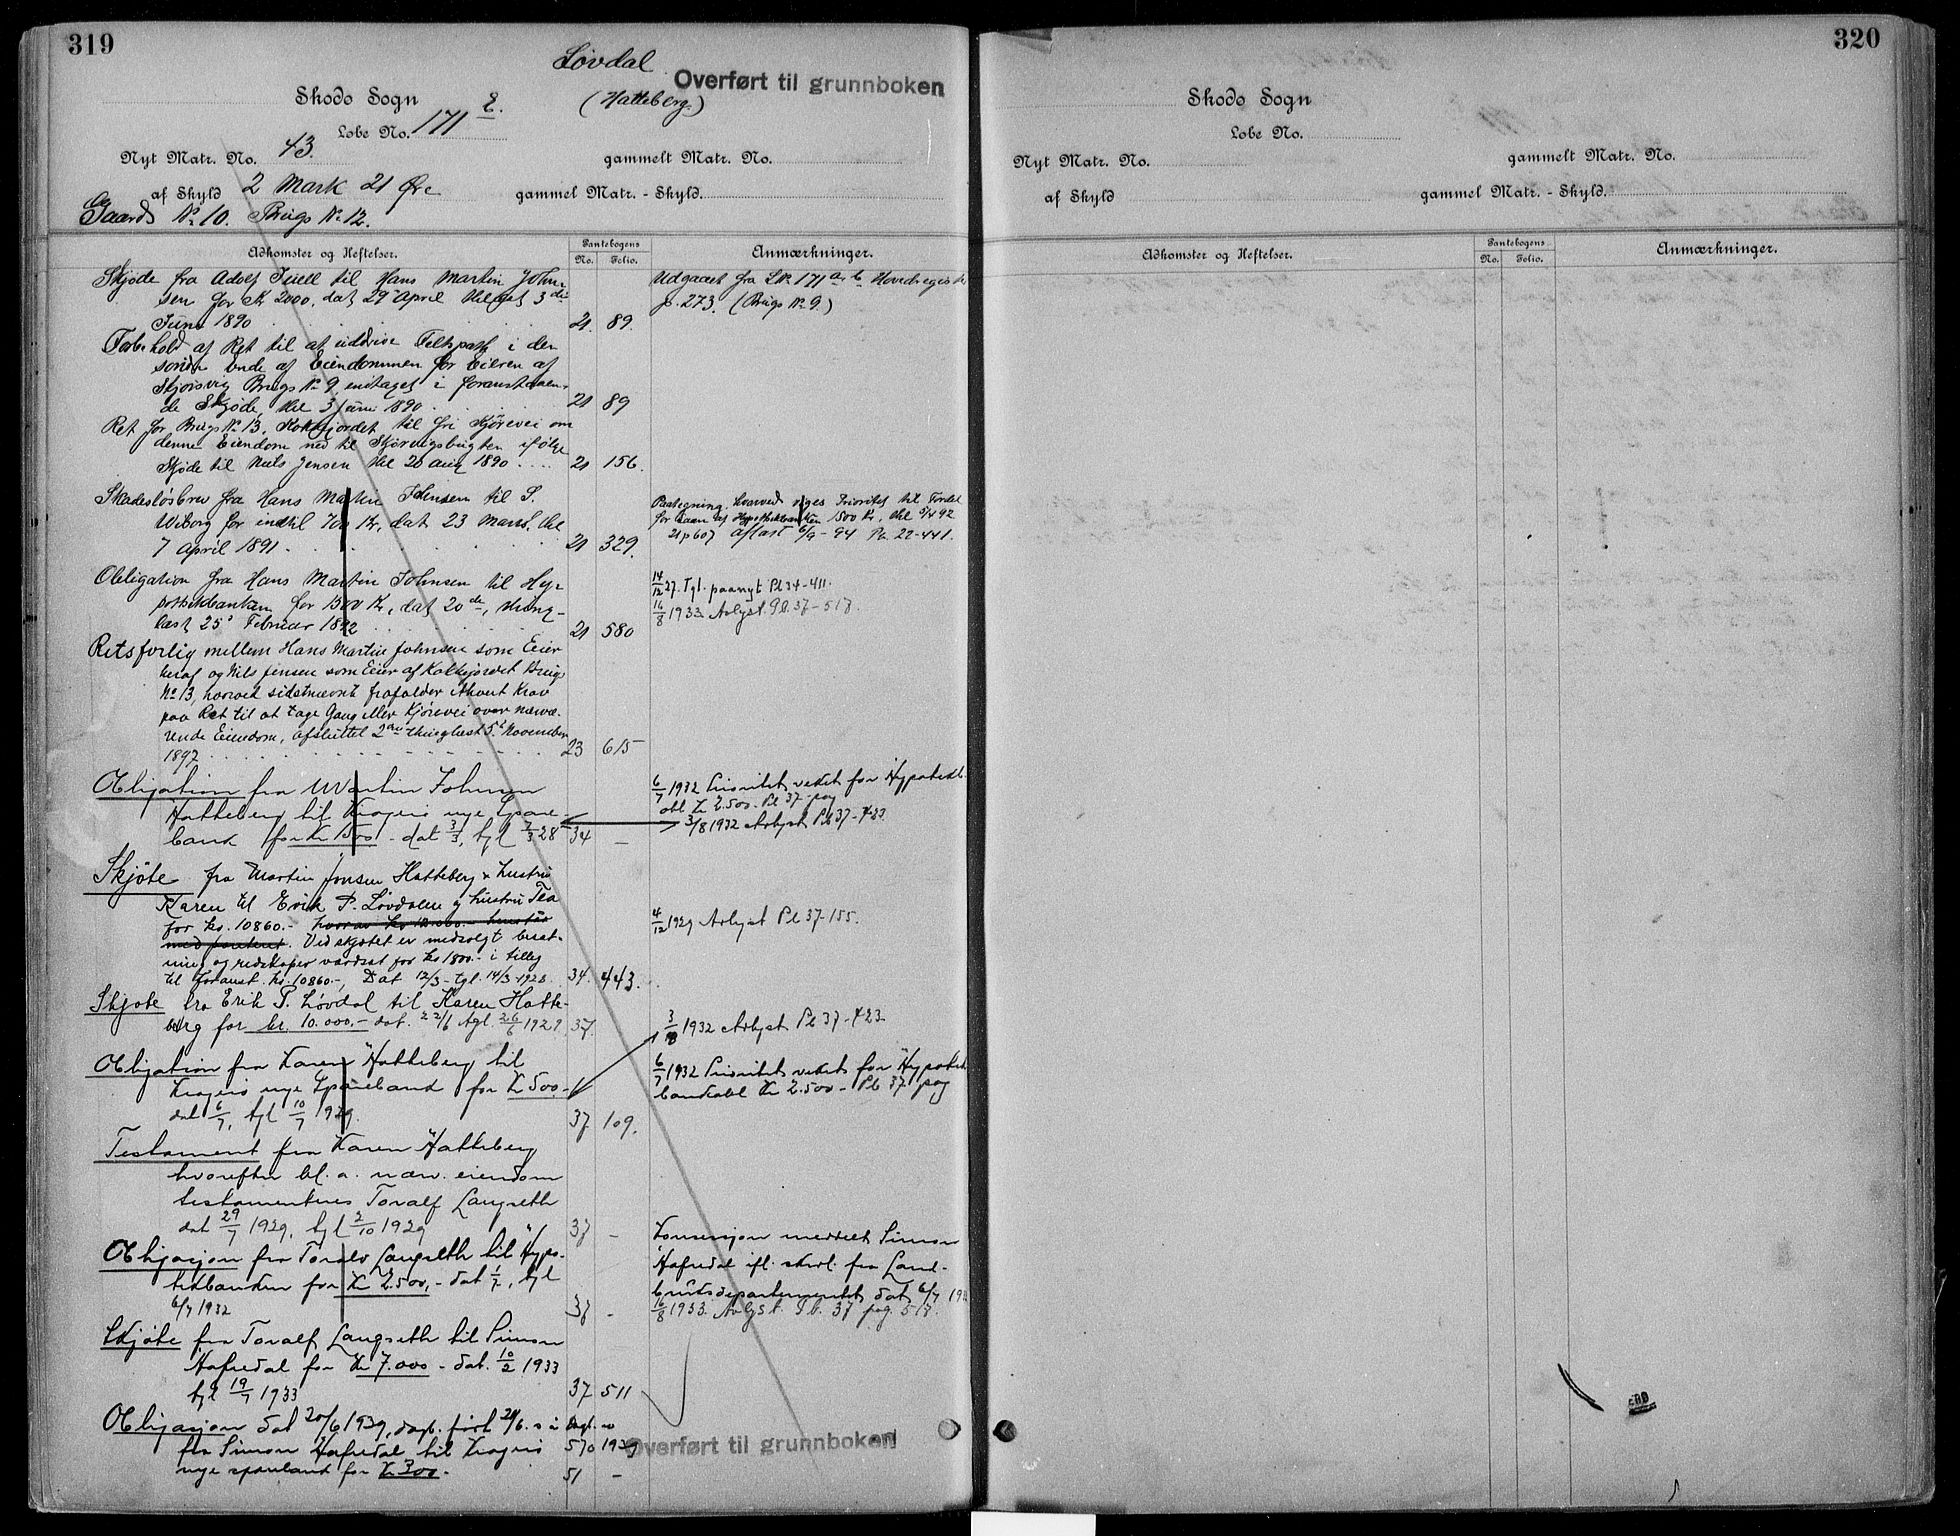 319
Løvdal
Overført til grunnboken
Skodo Sogn
(Hatteberg)
Løbe No. 171 e.
Nyt Matr. No. 43.
gammelt Matr. No.
af Skyld 2 Mark 21 Øre
gammel Matr.-Skyld.
Gaards No. 10. Brugs No. 12.
Adkomster og Heftelser.
Pantebogens
No. Folio.
Anmærkninger.
Skjøde fra Adolf Juell til Hans Martin John-
sen for Kr 2000, dat 29 April thlæst 3die
Juni 1890 21. 89.
Udgaaet fra LNr. 171 a, b Hovedregister
p. 273. (Brugs No 9.)
Forbehold af Ret til at uddrive Feltspath i den
søndre Ende af Eiendommen for Eieren af
Skjørsvig Brugs No 9 indtaget i foranstaaen-
de Skjøde, thl 3 Juni 1890 21 89
Ret for Brugs No 13, Kokkejordet til fri Kjørevei om
denne Eiendom ned til Skjørsvigsbugten ifølge
Skjøde til Niels Jensen thl 26 Aug 1890 21 156.
Skadesløsbrev fra Hans Martin Johnsen til S.
Wiborg for indtil 700 Kr, dat 23 Marts, thl
7 April 1891. 21 329.
Paategning, hvorved viges Prioritet til Fordel
for Laan af Hypothekbanken 1500 Kr, thl 5/4 92
21 p 607 Aflæst 6/9 - 94 Pr. 22-441.
Obligation fra Hans Martin Johnsen til Hy-
pothekbanken for 1500 Kr, dat 20de, thing-
læst 25. Februar 1892 21 580
14/12 27. Tgl. paanyt Pb 34-411.
16/8 1933 Avlyst. P.b. 37-518.
Retsforlig mellem Hans Martin Johnsen som Eier
heraf og Nils Jensen som Eier af Kokkejordet Brugs
No 13, hvorved sidstnævnte frafalder ethvert Krav
paa Ret til at tage Gang eller Kjørevei over nærvæ-
rende Eiendom, afsluttet 2den thinglæst 5. November
1897 23 615
Obligation fra Martin Johnsen
Hatteberg til Kragerø nye Spare-
bank for Kr 1500 - dat 3/3, tgl 7/3 28 34 -
6/7 1932 Prioritet veket for Hypotekb.
obl Kr 2.500 - Pb 37 pag
3/8 1932 Avlyst Pb 37-423
Skjøte fra Martin Jonsen Hatteberg & hustru
Karen til Erik P. Løvdalen og hustru Tea
for kr. 10860.- hvorav kr
Ved skjøtet er medsolgt besæt-
ning og redskaper værdsat for kr 1800.- i tillæg
til foranst. kr. 10860.-, Dat 12/3 - tgl. 14/3-1928. 34. 443.
4/12 1929 Avlyst Pb 37-155.
Skjøte fra Erik P. Løvdal til Karen Hatte-
berg for kr. 10.000.- dat. 22/6 tgl. 26/6 1929 37.
3/8 1932 Avlyst Pb 37-423
Obligation fra Karen Hatteberg til
Kragerø nye Sparebank for Kr 500.-
dat 6/7, tgl 10/7 1929. 37 109.
6/7 1932 Prioritet veket for Hypotek
bankobl Kr 2.500 - Pb 37 pag
Testament fra Karen Hatteberg
hvorefter bl. a. nærv. eiendom
testamenteres Toralf Langseth
dat 29/7 1929, tgl 2/10 1929 37 -
Obligasjon fra Toralv Langseth til Hypo-
tekbanken for Kr 2.500,- dat 1/7, tgl
6/7 1932 37 -
Konsesjon meddelt Simon
Hafredal ifl. skrl. fra Land-
bruksdepartementet dat 6/7 19
16/8 1933. Avlyst. P.b. 37 pag. 518.
Skjøte fra Toralf Langseth til Simon
Hafredal for Kr 7.000 - dat. 10/2 1933
tgl 19/7 1933 37 511
Obligasjon dat 20/6 1939, dagb. ført 21/6. s å Dagb. no
fra Simon Hafredal til Kragerø 570 1939
nye sparebank for Kr 300.- 51 -
Overført til grunnboken
320
Skodo Sogn
Løbe No.
Nyt Matr. No.
gammelt Matr. No.
af Skyld
gammel Matr.-Skyld.
Adkomster og Heftelser.
Pantebogens
No. Folio.
Anmærkninger.